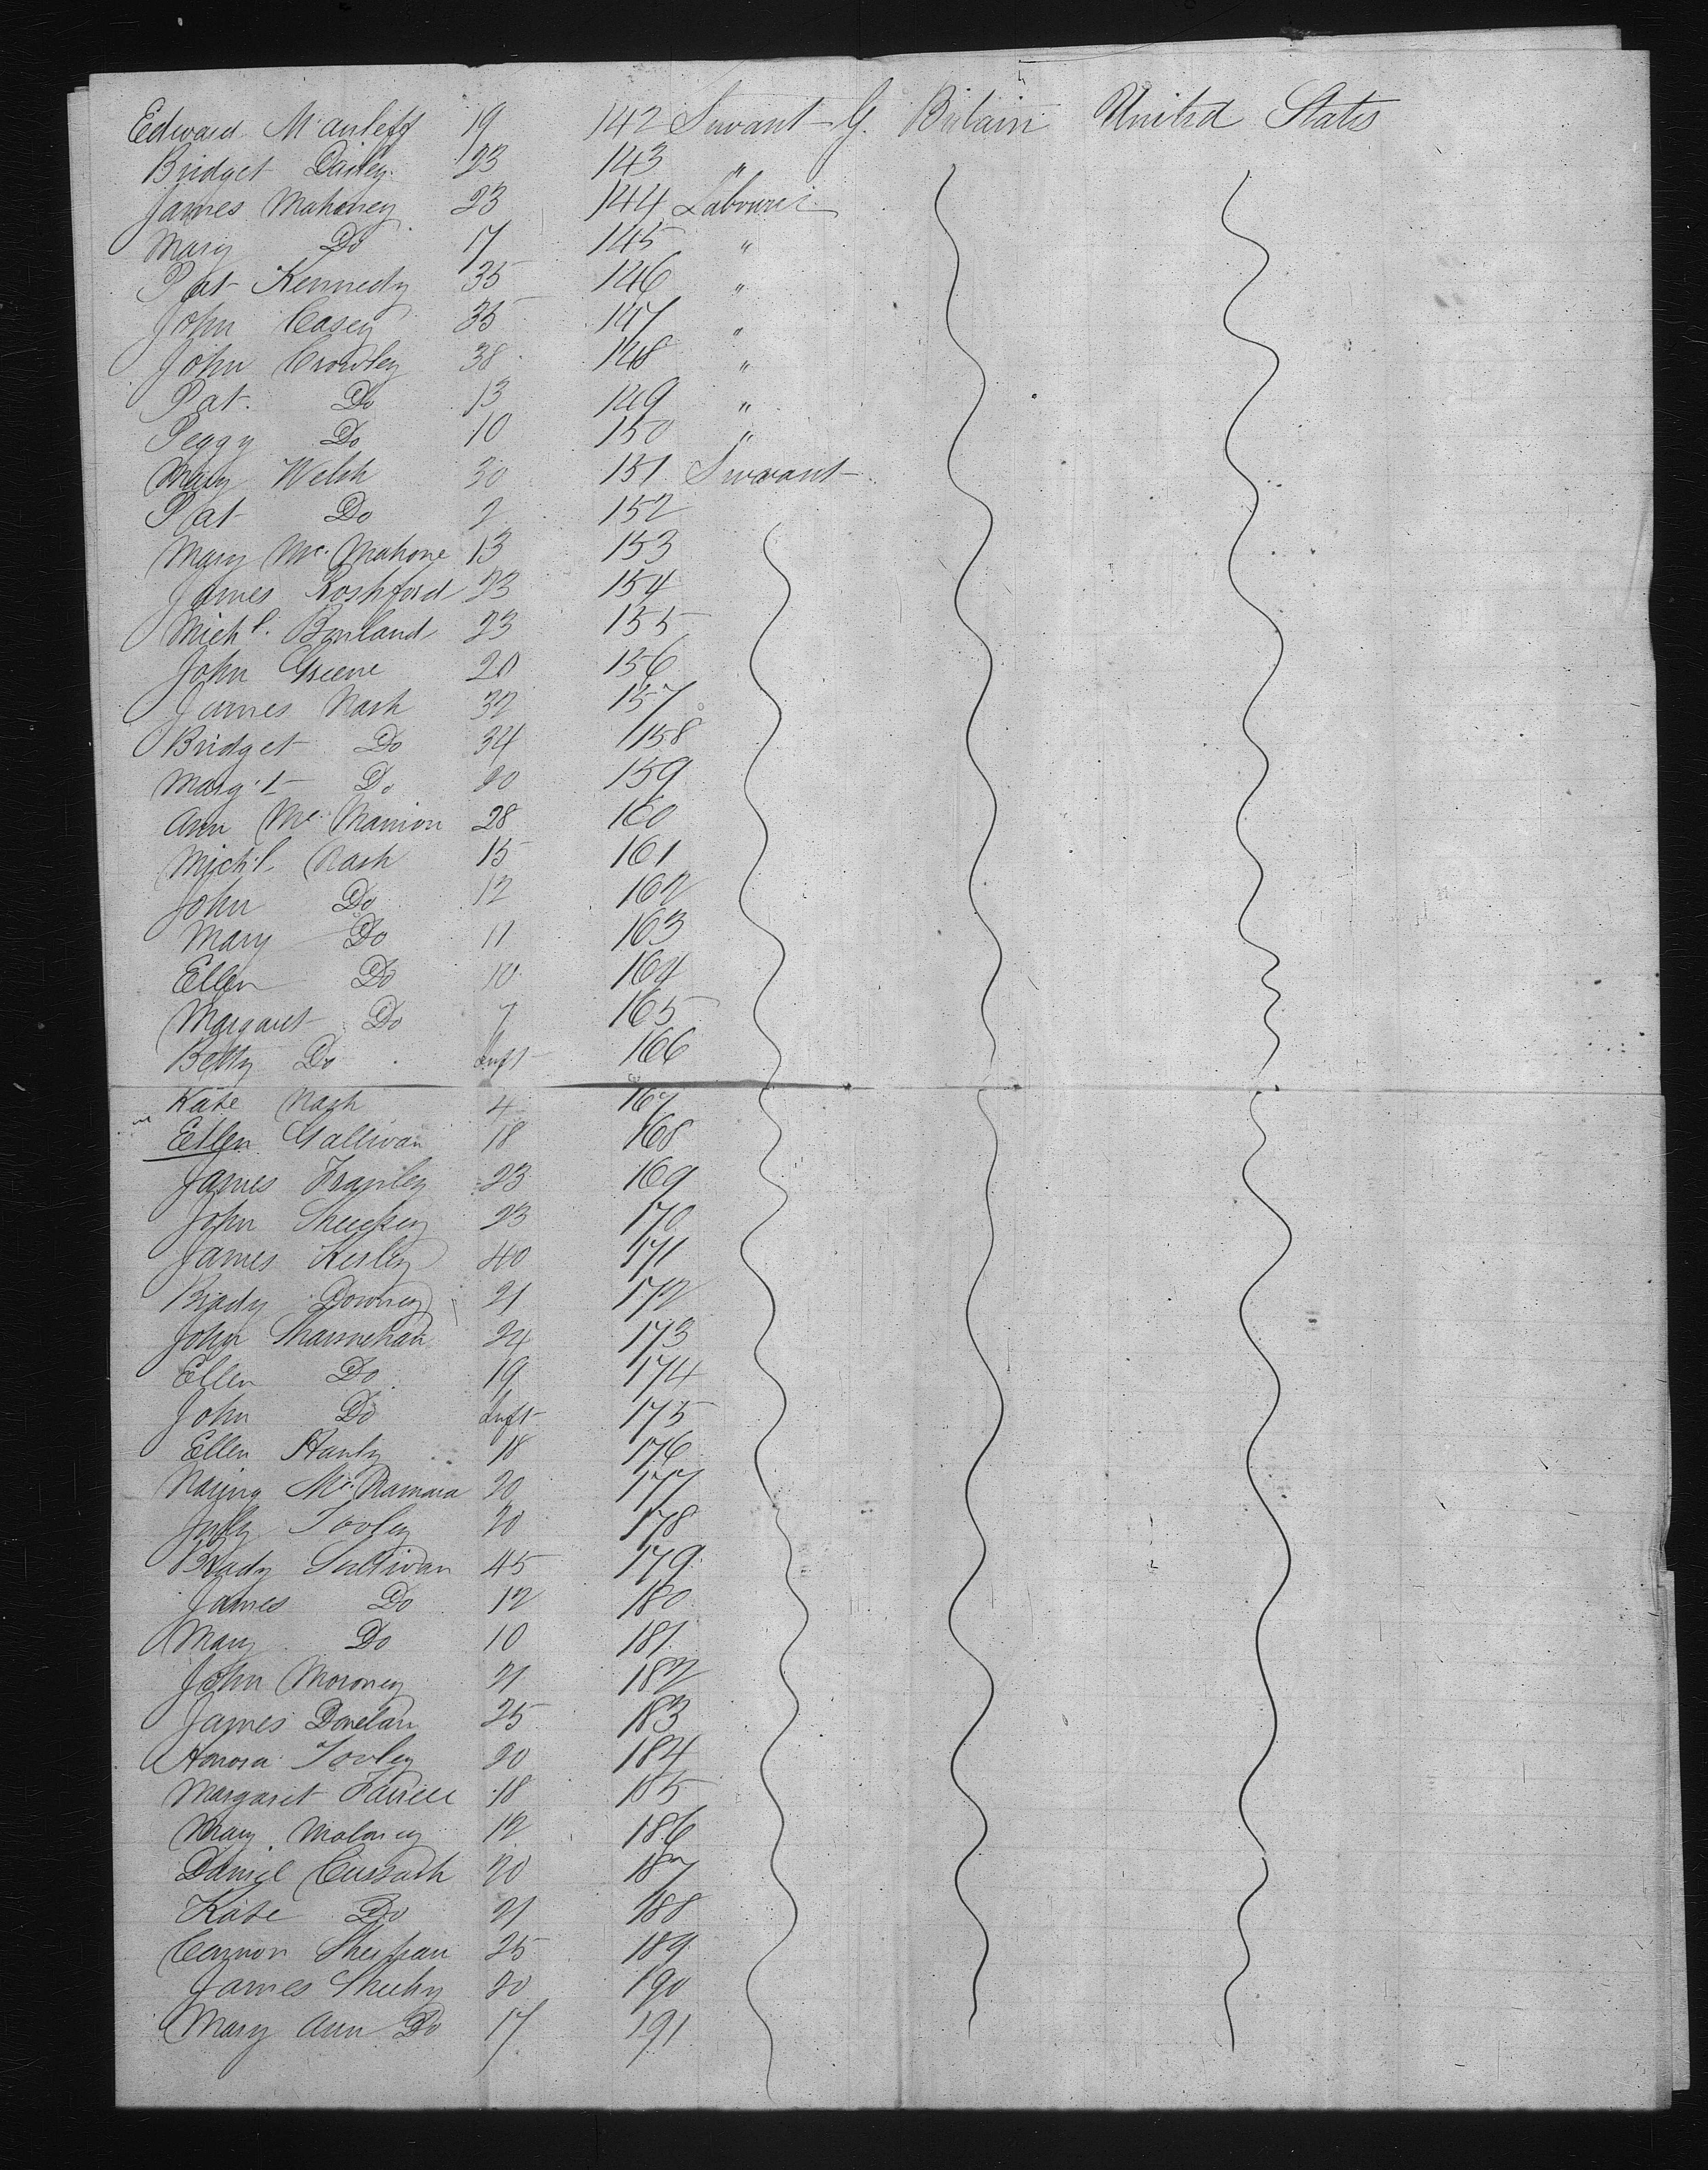 Edward McAuleff 19 142 Servant G. Britain United States
Bridget Dailey 23 143 "
James Mahoney 23 144 Labourer
Mary Do 17 145 "
Pat Kennedy 35 146 "
John Casey 35 147 "
John Crowley 38 148 "
Pat. Do 13 149 "
Peggy Do 10 150 "
Mary Welsh 30 151 Servant
Pat Do 2 152
Mary Mc. Mahone 13 153
James Roshford 23 154
Michl. Bonland 23 155
John Greene 20 156
James Nash 32 157
Bridget Do 34 158
Marg.t Do 20 159
Ann Mc Manion 28 160
Mich.l Nash 15 161
John Do 12 162
Mary Do 11 163
Ellen Do 10 164
Margaret Do 7 165
Betty Do Inft 166
Kate Nash 4 167
Ellen Gallivan 18 168
James Frawley 23 169
John Sheehey 23 170
James Kerley 40 171
Biddy Downey 21 172
John Shannehan 24 173
Ellen Do 19 174
John Do Inft 175
Ellen Hanly 18 176
Mc. Namara 20 177
July Tooley 20 178
Biddy Sullivan 45 179
James Do 12 180
Mary Do 10 181
John Moroney 21 182
James Donelan 25 183
Honora Tooley 20 184
Margaret Farrell 18 185
Mary Maloney 12 186
Daniel Cussack 20 187
Kate Do 21 188
Sheehan 25 189
James Sheehy 20 190
Mary Ann Do 17 191